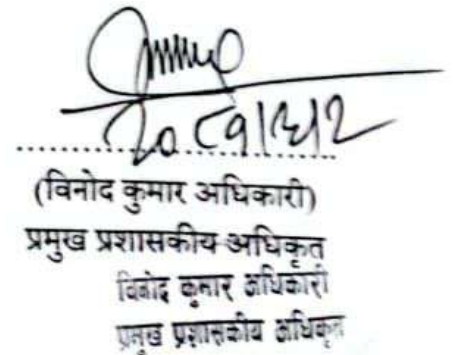 २०८१।३।२
(विनोद कुमार अधिकारी)
प्रमुख प्रशासकीय अधिकृत
विनोद कुमार अधिकारी
प्रमुख प्रशासकीय अधिकृत